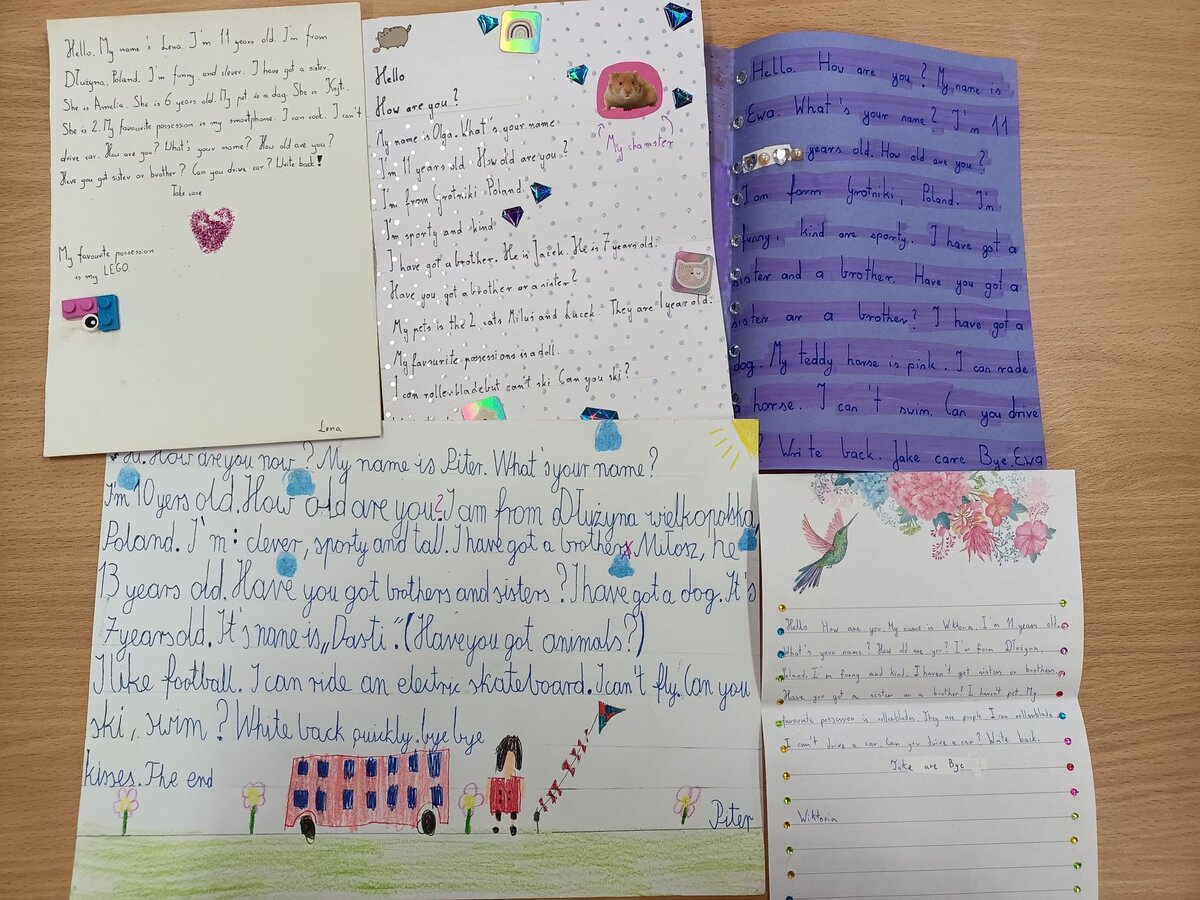 Hello. My name's Lena. I'm 11 years old. I'm from
Dłużyna, Poland. I'm funny and clever. I have got a sister.
She is Amelia. She is 6 years old. My pet is a dog. She is
She is 2. My favourite possession is my smartphone. I can cook. I can't
drive car. How are you? What's your name? How old are you?
Have you got sister or brother? Can you drive car? Write back!
Take care
My favourite possession
is my LEGO.
Lena
Hello
How are you?
My name is Olga. What's your name
I'm 11 years old. How old are you?
I'm from Grotniki Poland.
I'm sporty and kind
I have got a brother. He is Jacek. He is 7 years old.
Have you got a brother or a sister?
My pets is the 2 cats Miluś and Lucek. They are 1 year old.
My favourite possessions is a doll.
I can rollerblade but can't ski. Can you ski?
(My chamster)
Hello. How are you? My name is
Ewa. What's your name? I'm 11
years old. How old are you?
I am form Grotniki, Poland. I'm
funny, kind are sporty. I have got a
sister and a brother. Have you got a
sister an a brother? I have got a
dog. My teddy horse is pink. I can rade
a horse. I can't swim. Can you drive
? Write back. Jake care Bye. Ewa
How are you now? My name is Piter. What's your name?
I'm 10 yers old. How old are you? I am from Dłużyna wielkopolska,
Poland. I'm: clever, sporty and tall. I have got a brother Miłosz, he
13 years old. Have you got brothers and sisters? I have got a dog. It's
7 years old. It's name is „Dasti". (Have you got animals?)
I like football. I can ride an electric skateboard. I can't fly. Can you
ski, swim? White back quickly. bye bye
kisses. The end
Piter
Hello How are you. My name is Wiktoria. I'm 11 years old.
What's your name? How old are you? I'm form Dłużyna,
Poland. I'm funny and kind. I haven't got sisters or brothers.
Have you got a sister or a brother? I haven't pet. My
favourite possession is rollerblades. They are I can rollerblade
I can't drive a car. Can you drive a car? Write back.
Take are Bye
Wiktoria